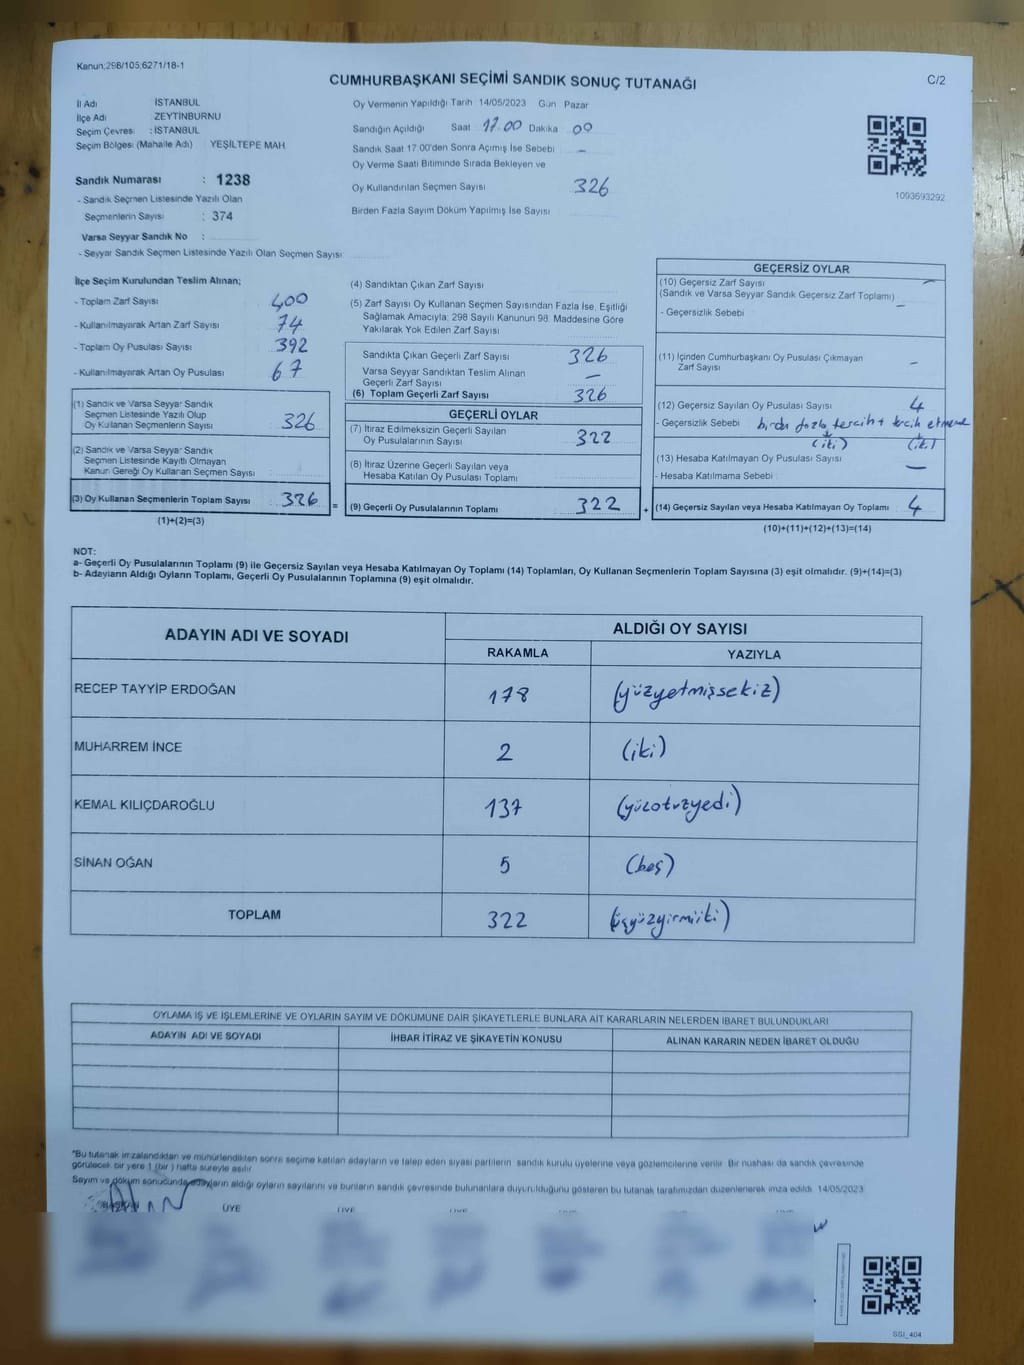 Kanun;298/105;6271/18-1
C/2
CUMHURBAŞKANI SEÇİMİ SANDIK SONUÇ TUTANAĞI
İl Adı İSTANBUL
İlçe Adı ZEYTİNBURNU
Seçim Çevresi : İSTANBUL
Seçim Bölgesi (Mahalle Adı) YEŞİLTEPE MAH.
Sandık Numarası : 1238
- Sandık Seçmen Listesinde Yazılı Olan
Seçmenlerin Sayısı : 374
Varsa Seyyar Sandık No :
- Seyyar Sandık Seçmen Listesinde Yazılı Olan Seçmen Sayısı:
Oy Vermenin Yapıldığı Tarih 14/05/2023 Gün Pazar
Sandığın Açıldığı Saat 17.00 Dakika 00
Sandık Saat 17.00'den Sonra Açılmış İse Sebebi –
Oy Verme Saati Bitiminde Sırada Bekleyen ve
Oy Kullandırılan Seçmen Sayısı 326
Birden Fazla Sayım Döküm Yapılmış İse Sayısı
1093693292
İlçe Seçim Kurulundan Teslim Alınan;
- Toplam Zarf Sayısı 400
- Kullanılmayarak Artan Zarf Sayısı 74
- Toplam Oy Pusulası Sayısı 392
- Kullanılmayarak Artan Oy Pusulası 67
(1) Sandık ve Varsa Seyyar Sandık
Seçmen Listesinde Yazılı Olup
Oy Kullanan Seçmenlerin Sayısı 326
(2) Sandık ve Varsa Seyyar Sandık
Seçmen Listesinde Kayıtlı Olmayan
Kanun Gereği Oy Kullanan Seçmen Sayısı
(3) Oy Kullanan Seçmenlerin Toplam Sayısı 326
(1)+(2)=(3)
(4) Sandıktan Çıkan Zarf Sayısı
(5) Zarf Sayısı Oy Kullanan Seçmen Sayısından Fazla İse, Eşitliği
Sağlamak Amacıyla; 298 Sayılı Kanunun 98. Maddesine Göre
Yakılarak Yok Edilen Zarf Sayısı
Sandıkta Çıkan Geçerli Zarf Sayısı 326
Varsa Seyyar Sandıktan Teslim Alınan
Geçerli Zarf Sayısı –
(6) Toplam Geçerli Zarf Sayısı 326
GEÇERLİ OYLAR
(7) İtiraz Edilmeksizin Geçerli Sayılan
Oy Pusulalarının Sayısı 322
(8) İtiraz Üzerine Geçerli Sayılan veya
Hesaba Katılan Oy Pusulası Toplamı
= (9) Geçerli Oy Pusulalarının Toplamı 322
GEÇERSİZ OYLAR
(10) Geçersiz Zarf Sayısı –
(Sandık ve Varsa Seyyar Sandık Geçersiz Zarf Toplamı)
- Geçersizlik Sebebi –
(11) İçinden Cumhurbaşkanı Oy Pusulası Çıkmayan
Zarf Sayısı –
(12) Geçersiz Sayılan Oy Pusulası Sayısı 4
- Geçersizlik Sebebi birden fazla tercih + tercih etmeme
(iki) (iki)
(13) Hesaba Katılmayan Oy Pusulası Sayısı –
- Hesaba Katılmama Sebebi
+ (14) Geçersiz Sayılan veya Hesaba Katılmayan Oy Toplamı 4
(10)+(11)+(12)+(13)=(14)
NOT:
a- Geçerli Oy Pusulalarının Toplamı (9) ile Geçersiz Sayılan veya Hesaba Katılmayan Oy Toplamı (14) Toplamları, Oy Kullanan Seçmenlerin Toplam Sayısına (3) eşit olmalıdır. (9)+(14)=(3)
b- Adayların Aldığı Oyların Toplamı, Geçerli Oy Pusulalarının Toplamına (9) eşit olmalıdır.
ADAYIN ADI VE SOYADI
ALDIĞI OY SAYISI
RAKAMLA YAZIYLA
RECEP TAYYİP ERDOĞAN 178 (yüzyetmişsekiz)
MUHARREM İNCE 2 (iki)
KEMAL KILIÇDAROĞLU 137 (yüzotuzyedi)
SİNAN OĞAN 5 (beş)
TOPLAM 322 (üçyüzyirmiiki)
OYLAMA İŞ VE İŞLEMLERİNE VE OYLARIN SAYIM VE DÖKÜMÜNE DAİR ŞİKAYETLERLE BUNLARA AİT KARARLARIN NELERDEN İBARET BULUNDUKLARI
ADAYIN ADI VE SOYADI İHBAR İTİRAZ VE ŞİKAYETİN KONUSU ALINAN KARARIN NEDEN İBARET OLDUĞU
*Bu tutanak imzalandıktan ve mühürlendikten sonra seçime katılan adayların ve talep eden siyasi partilerin sandık kurulu üyelerine veya gözlemcilerine verilir. Bir nushası da sandık çevresinde
görülecek bir yere 1 (bir ) hafta süreyle asılır.
Sayım ve döküm sonucunda adayların aldığı oyların sayılarını ve bunların sandık çevresinde bulunanlara duyurulduğunu gösteren bu tutanak tarafımızdan düzenlenerek imza edildi. 14/05/2023
BAŞKAN ÜYE
SSİ_404